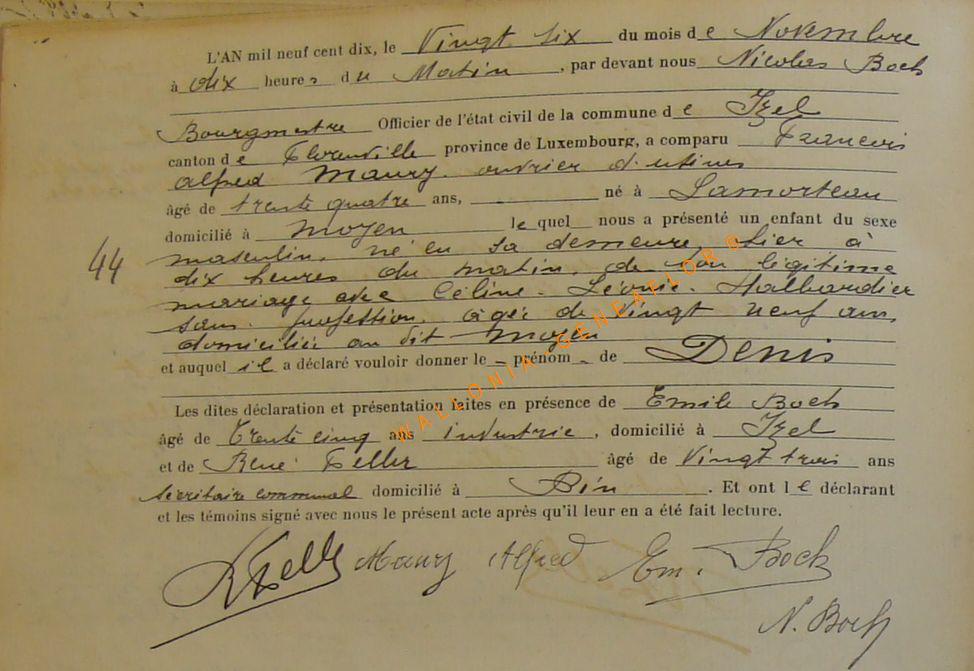 L'AN mil neuf cent dix, le Vingt six du mois de Novembre
à dix heures du Matin, par devant nous Nicolas Bock
Bourgmestre Officier de l'état civil de la commune de Izel
canton de Florenville province de Luxembourg, a comparu Francois
alfred Maury. ouvrier d'usines
âgé de trente quatre ans, né à Lamorteau
domicilié à Moyen lequel nous a présenté un enfant du sexe
masculin, né en sa demeure, hier à
44
dix heures du matin, de son légitime
mariage avec Céline - Léonie - Halbardier
sans profession, agée de vingt neuf ans,
domiciliée au dit Moyen
et auquel il a déclaré vouloir donner le - prénom - de Denis
Les dites déclaration et présentation faites en présence de Emile Bock
âgé de trente cinq ans industrie, domicilié à Izel
et de René Feller âgé de Vingt trois ans
secrétaire communal domicilié à Pin. Et ont le déclarant
et les témoins signé avec nous le présent acte après qu'il leur en a été fait lecture.
Maury Alfred Em. Bock
N. Bock
WALLONIA - GENEAFLOR ©